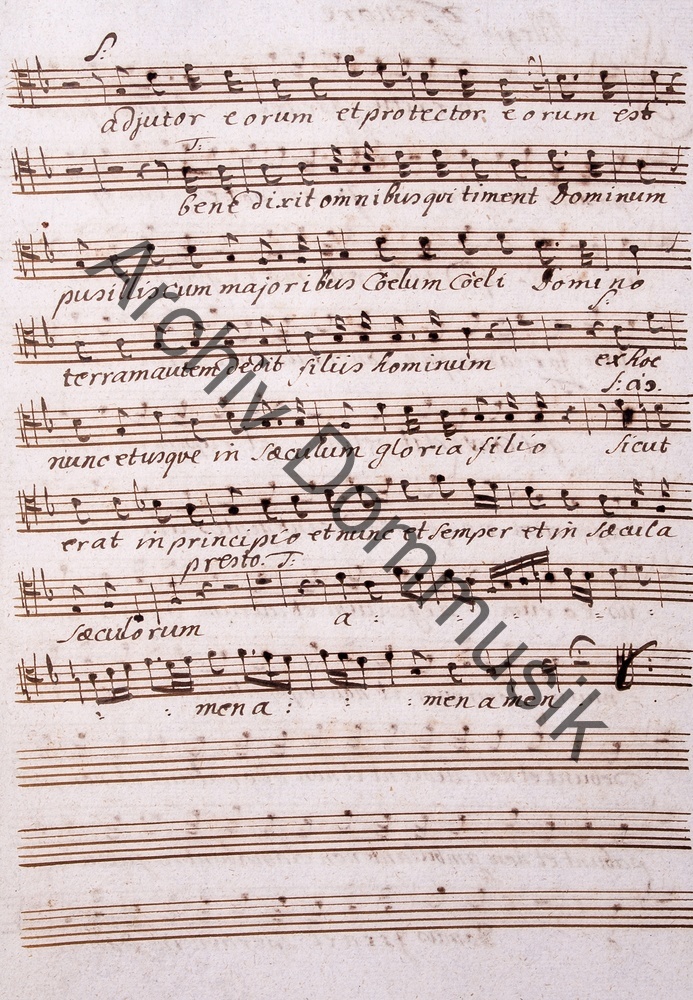 S:
adjutor eorum et protector eorum est
T:
bene dixit omnibus qui timent Dominum
pusillis cum majoribus Coelum Coeli Domino
S:
terram autem dedit filiis hominum ex hoc
nunc et usque in Sæculum gloria filio Sicut
erat in principio et nunc et Semper et in Sæcula
presto. T:
Sæculorum a
men a men a men
Archiv Dommusik